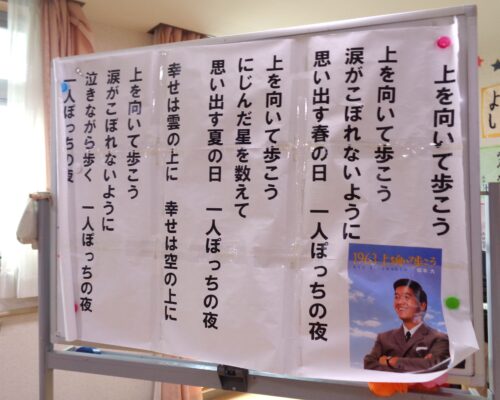 上を向いて歩こう
上を向いて歩こう
涙がこぼれないように
思い出す春の日　一人ぽっちの夜
上を向いて歩こう
にじんだ星を数えて
思い出す夏の日　一人ぽっちの夜
幸せは雲の上に　幸せは空の上に
上を向いて歩こう
涙がこぼれないように
泣きながら歩く　一人ぽっちの夜
一人ぽっちの夜
1963 上を向いて歩こう
坂本 九
よし